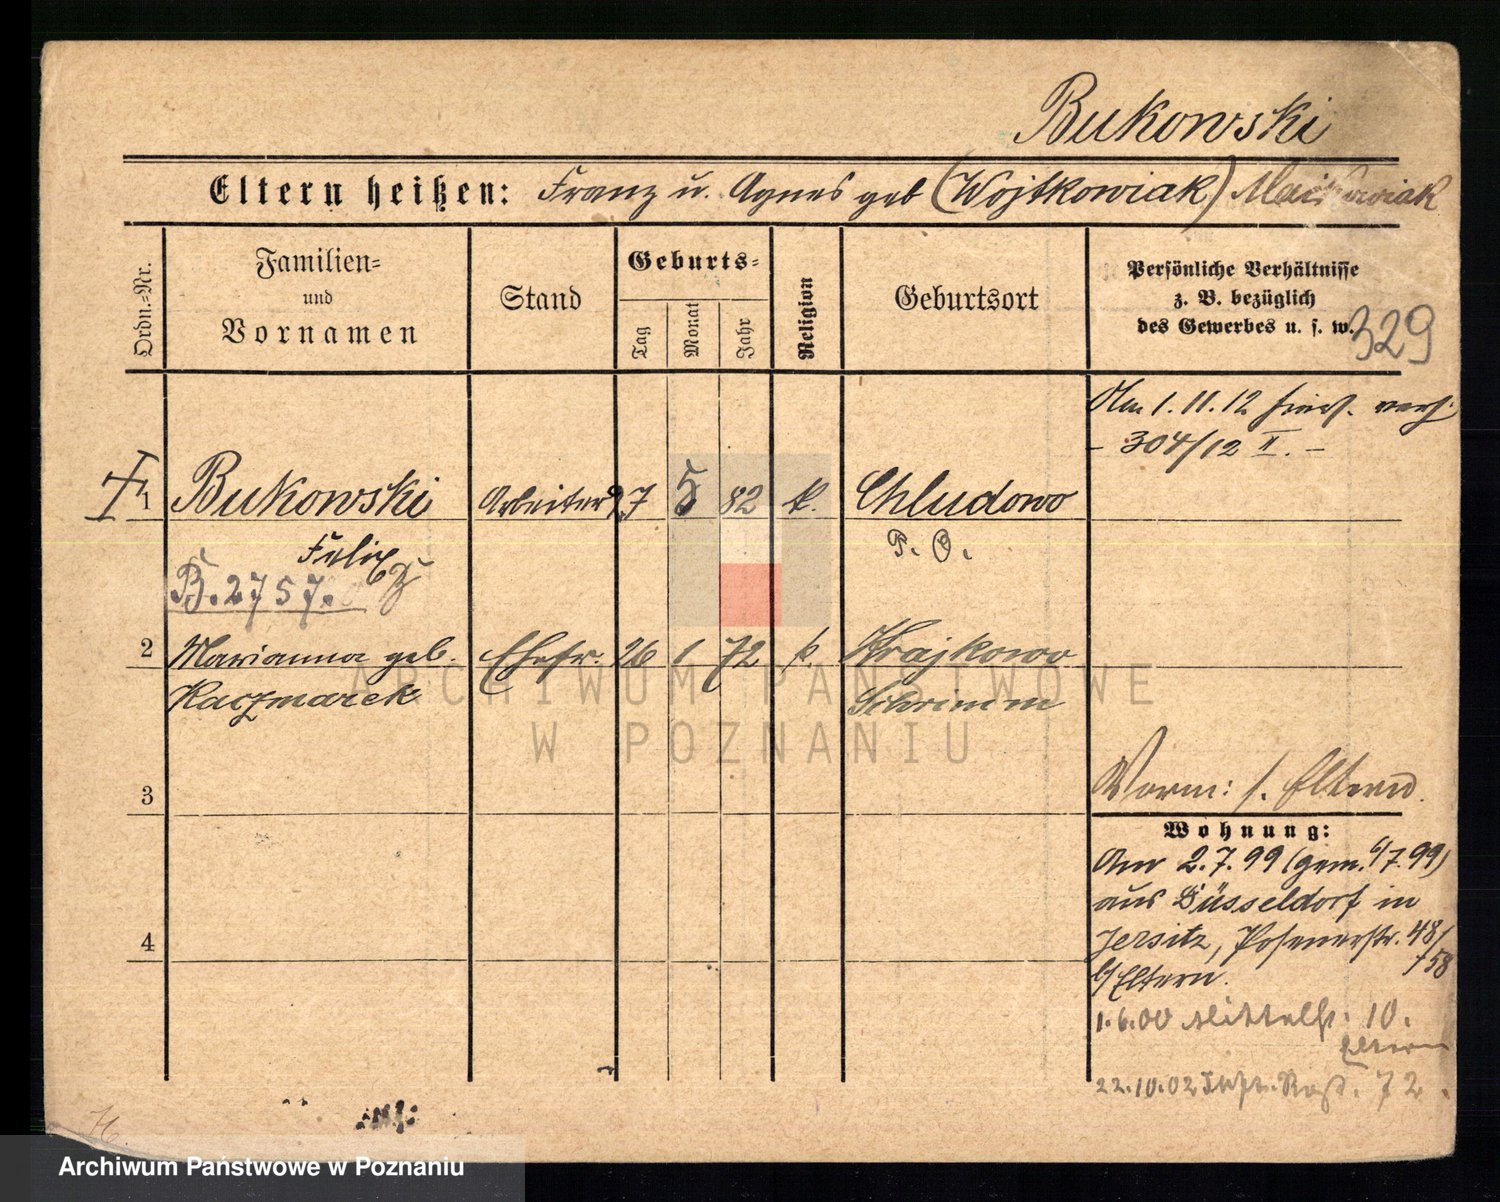 Bukowski
Eltern heißen: Franz u. Agnes geb (Wojtkowiak)
Ordn.-Nr.
Familien-
und
Vornamen
Stand
Geburts-
Tag
Monat
Jahr
Religion
Geburtsort
Persönliche Verhältnisse
z. B. bezüglich
des Gewerbes u. s. w.
329
Am 1.11.12
- 304/12 II. -
1 Bukowski Arbeiter 27 5 82 k. Chludowo
Felix P. O.
B. 2757.
2 Marianna geb. Ehefr. 26 1 72 k. Krajkowo
Kaczmarek Schrimm
3
Vorm: s. Eltern
Wohnung:
Am 2.7.99 (gem. 6/7.99)
aus Düsseldorf in
4
Jersitz, Posenerstr. 48/
58
b/Eltern.
1.6.00 Mittelstr. 10.
Eltern
22.10.02 72.
ARCHIWUM PAŃSTWOWE
W POZNANIU
Archiwum Państwowe w Poznaniu